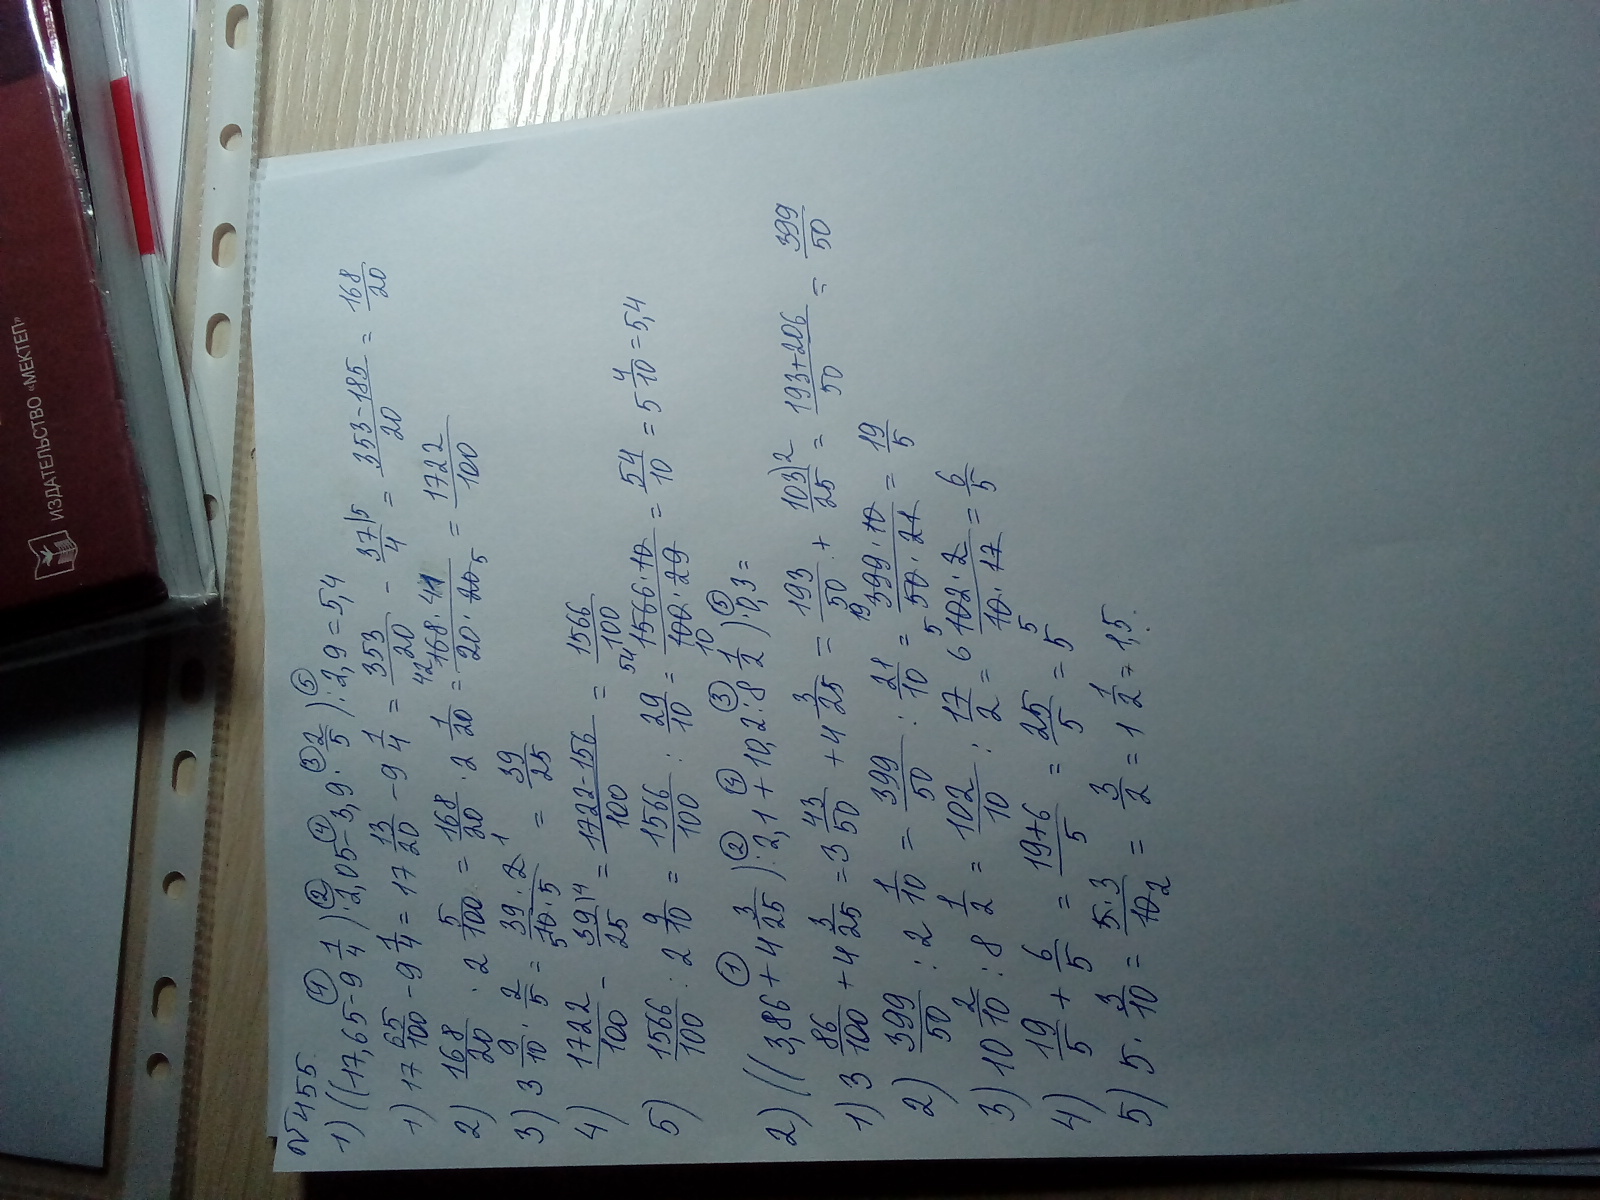 ИЗДАТЕЛЬСТВО «МЕКТЕП»
№455.
1) ((17,65 - 9 1/4) · 2,05 - 3,9 · 2/5) : 2,9 = 5,4
1) 17 65/100 - 9 1/4 = 17 13/20 - 9 1/4 = 353/20 - 37/4 |5 = (353 - 185)/20 = 168/20
2) 168/20 · 2 5/100 = 168/20 · 2 1/20 = (168 · 41)/(20 · 20) = 1722/100
3) 3 9/10 · 2/5 = (39 · 2)/(10 · 5) = 39/25
4) 1722/100 - 39/25 |4 = (1722 - 156)/100 = 1566/100
5) 1566/100 : 2 9/10 = 1566/100 : 29/10 = (1566 · 10)/(100 · 29) = 54/10 = 5 4/10 = 5,4
2) ((3,86 + 4 3/25) : 2,1 + 10,2 : 8 1/2) · 0,3 =
1) 3 86/100 + 4 3/25 = 3 43/50 + 4 3/25 = 193/50 + 103/25 |2 = (193 + 206)/50 = 399/50
2) 399/50 : 2 1/10 = 399/50 : 21/10 = (399 · 10)/(50 · 21) = 19/5
3) 10 2/10 : 8 1/2 = 102/10 : 17/2 = (102 · 2)/(10 · 17) = 6/5
4) 19/5 + 6/5 = (19+6)/5 = 25/5 = 5
5) 5 · 3/10 = (5 · 3)/10 = 3/2 = 1 1/2 = 1,5.